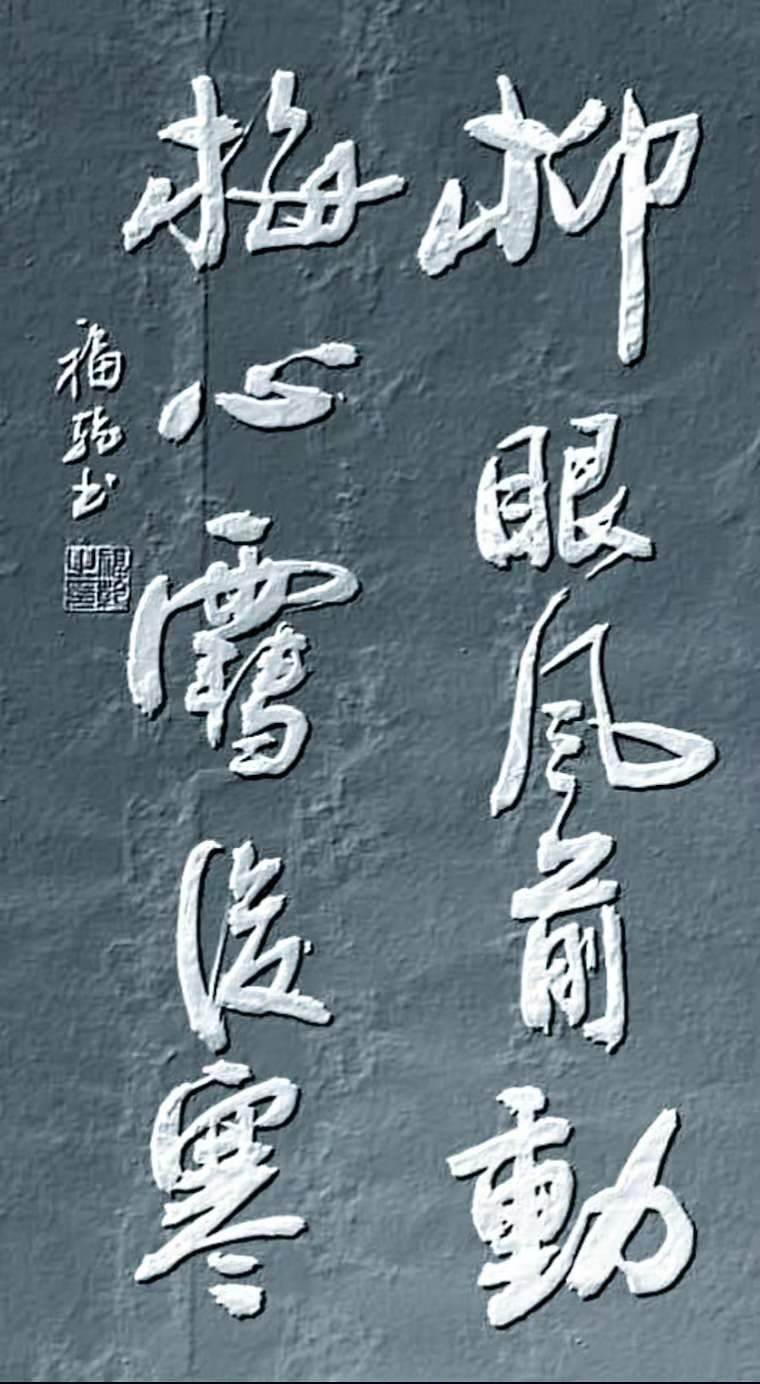 柳眼風前動
梅心雪後寒
福书